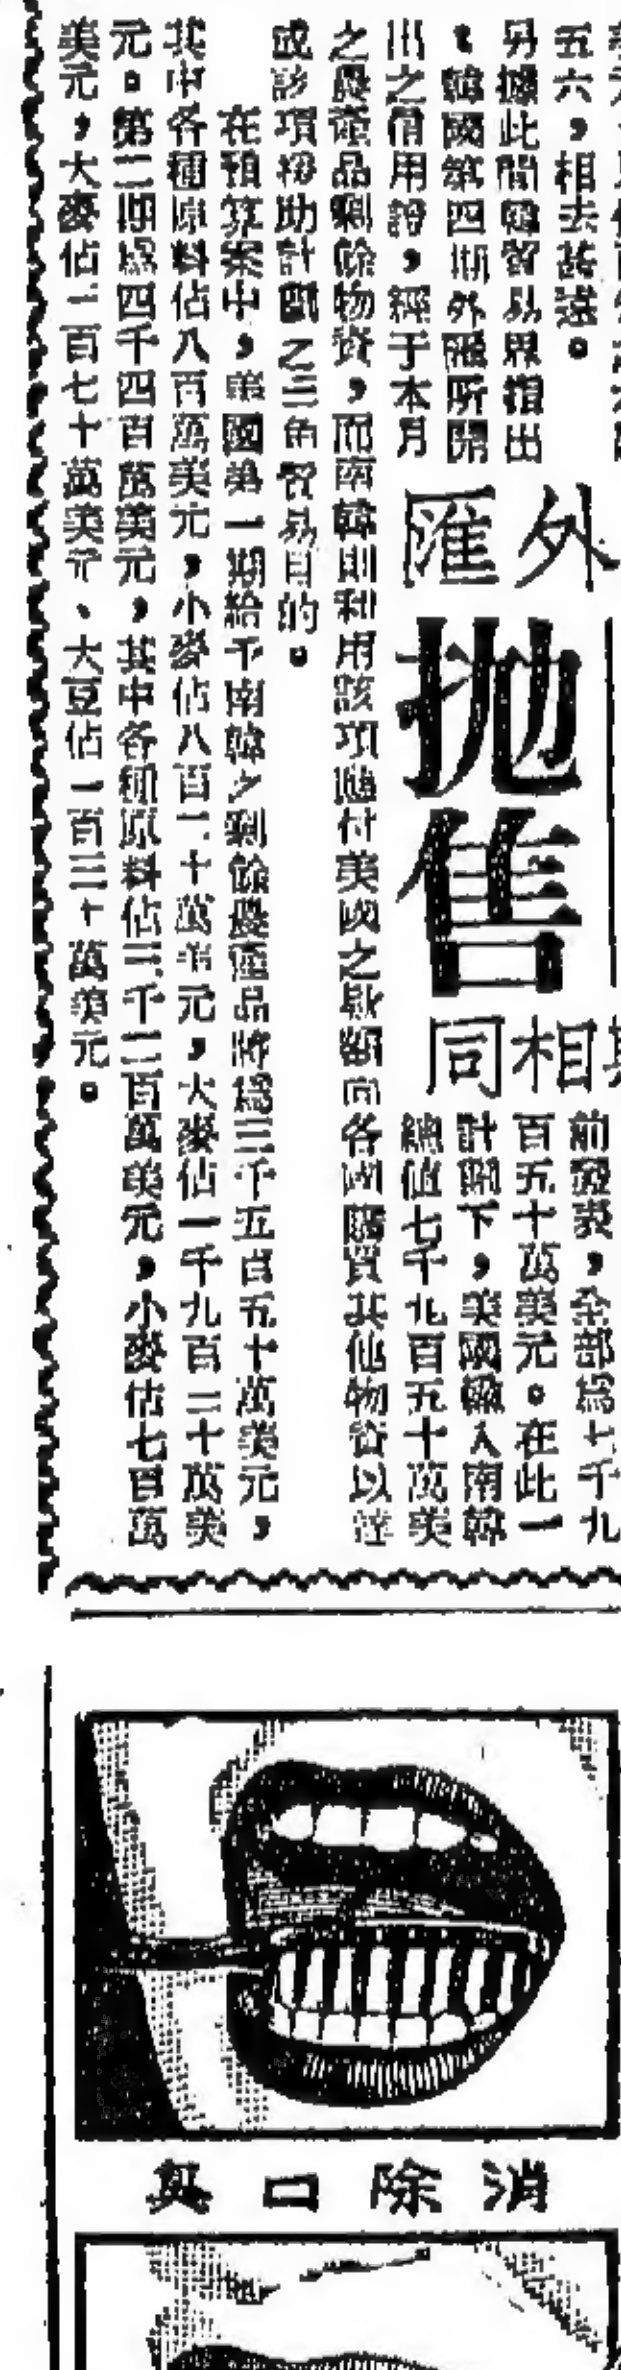 五六，相去甚遠。
另據此間韓貿易界指出
，韓國第四期外匯所開
出之信用證，經于本月
外匯
拋售
相同
前發表，全部為七千九
百五十萬美元。在此一
計劃下，美國輸入南韓
總值七千九百五十萬美
之農產品剩餘物資，而南韓則利用該項應付美國之款額向各國購買其他物資以達
成該項援助計劃之三角貿易目的。
在預算案中，美國第一期給予南韓之剩餘農產品將為三千五百五十萬美元，
其中各種原料佔八百萬美元，小麥佔八百一十萬美元，大麥佔一千九百二十萬美
元。第二期為四千四百萬美元，其中各種原料佔三千二百萬美元，小麥佔七百萬
美元，大麥佔二百七十萬美元、大豆佔一百三十萬美元。
消除口臭